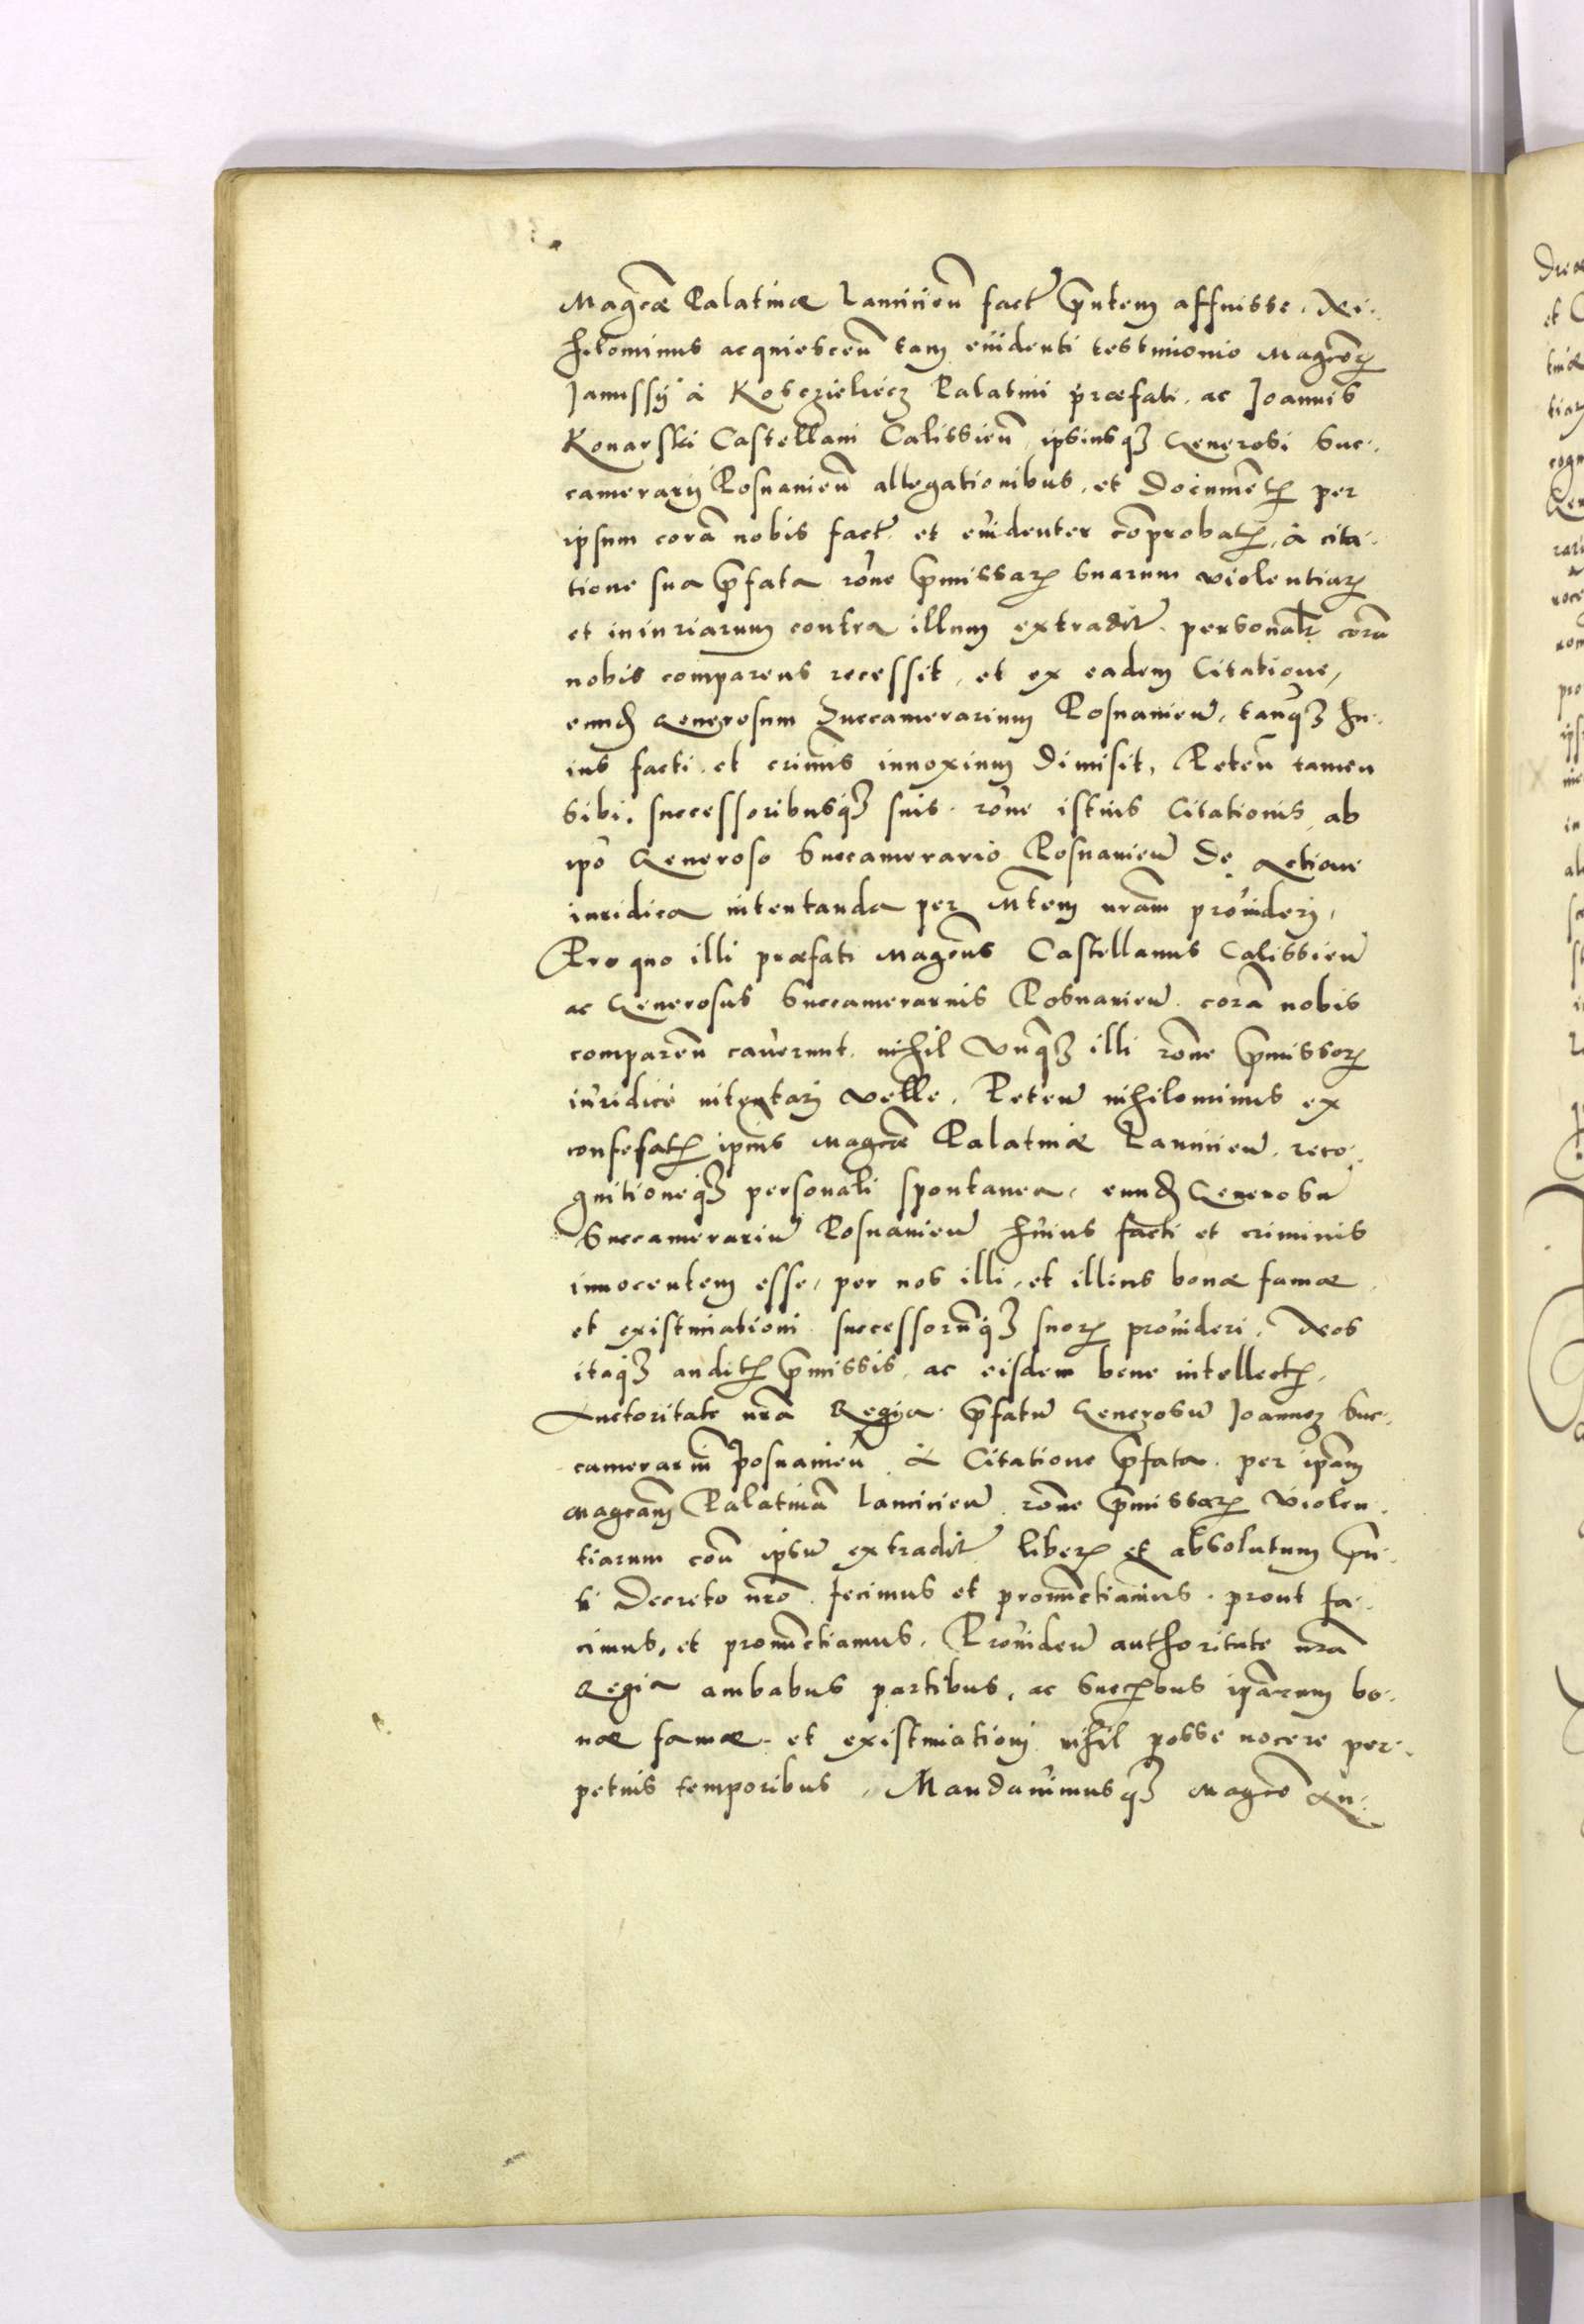 Magcæ Palatinæ Lancicieñ fact pñtem affuisse. Ni-
hilominus acquiesceñ tam euidenti testimonio Magcorꝝ
Janussÿ à Kosczielecz Palatini præfati. ac Joannis
Konarski Castellani Calissieñ ipsiusqꝫ Generosi Suc-
camerarÿ Posnanieñ allegationibus, et documetꝭ per
ipsum corā nobis fact et euidenter cōprobatꝭ, à cita-
tione sua p̄fata rōne p̄missarꝝ suarum violentiarꝝ
et iniuriarum contra illum extradit. personalr corā
nobis comparens recessit, et ex eadem Citatione,
eund Generosum Succamerarium Posnanieñ, tanqꝫ hu-
ius facti et criminis innoxium dimisit, Reteñ tamen
sibi, successoribusqꝫ suis rōne istius Citationis ab
ipō Generoso Succamerario Posnanieñ de actione
iuridica intentanda per Mtem nrām prouideri,
Pro quo illi præfati Magcus Castellanus Calissieñ
ac Generosus Succamerarius Posnanieñ corā nobis
compareñ cauerunt nihil vnqꝫ illi rōne p̄missorꝝ
iuridicè intentari velle. Reteñ nihilominus ex
confessatꝭ ipius Magcæ Palatinæ Lancicieñ, reco-
gnitioneqꝫ personali spontanea, eund Generosū
Succamerariū Posnanieñ huius facti et criminis
innocentem esse, per nos illi, et illius bonæ famæ
et existimationi successorūqꝫ suorꝝ prouideri. Nos
itaqꝫ auditꝭ p̄missis, ac eisdem bene intellectꝭ,
Auctoritate nrā Regia p̄fatū Generosū Joannem Suc-
camerariū Posnanieñ à Citatione p̄fata per ipām
Magcam Palatinā Lancicieñ rōne p̄missarꝝ violen-
tiarum coñ ipsū extradit liberꝝ et absolutum p̄n-
ti Decreto nrō fecimus et pronūctiauimus, prout fa-
cimus, et pronūctiamus, Prouideñ authoritate nrā
Regia ambabus partibus, ac Succꝭbus ipārum bo-
næ famæ et existimationi nihil posse nocere per-
petuis temporibus, Mandauimusqꝫ Magco An-